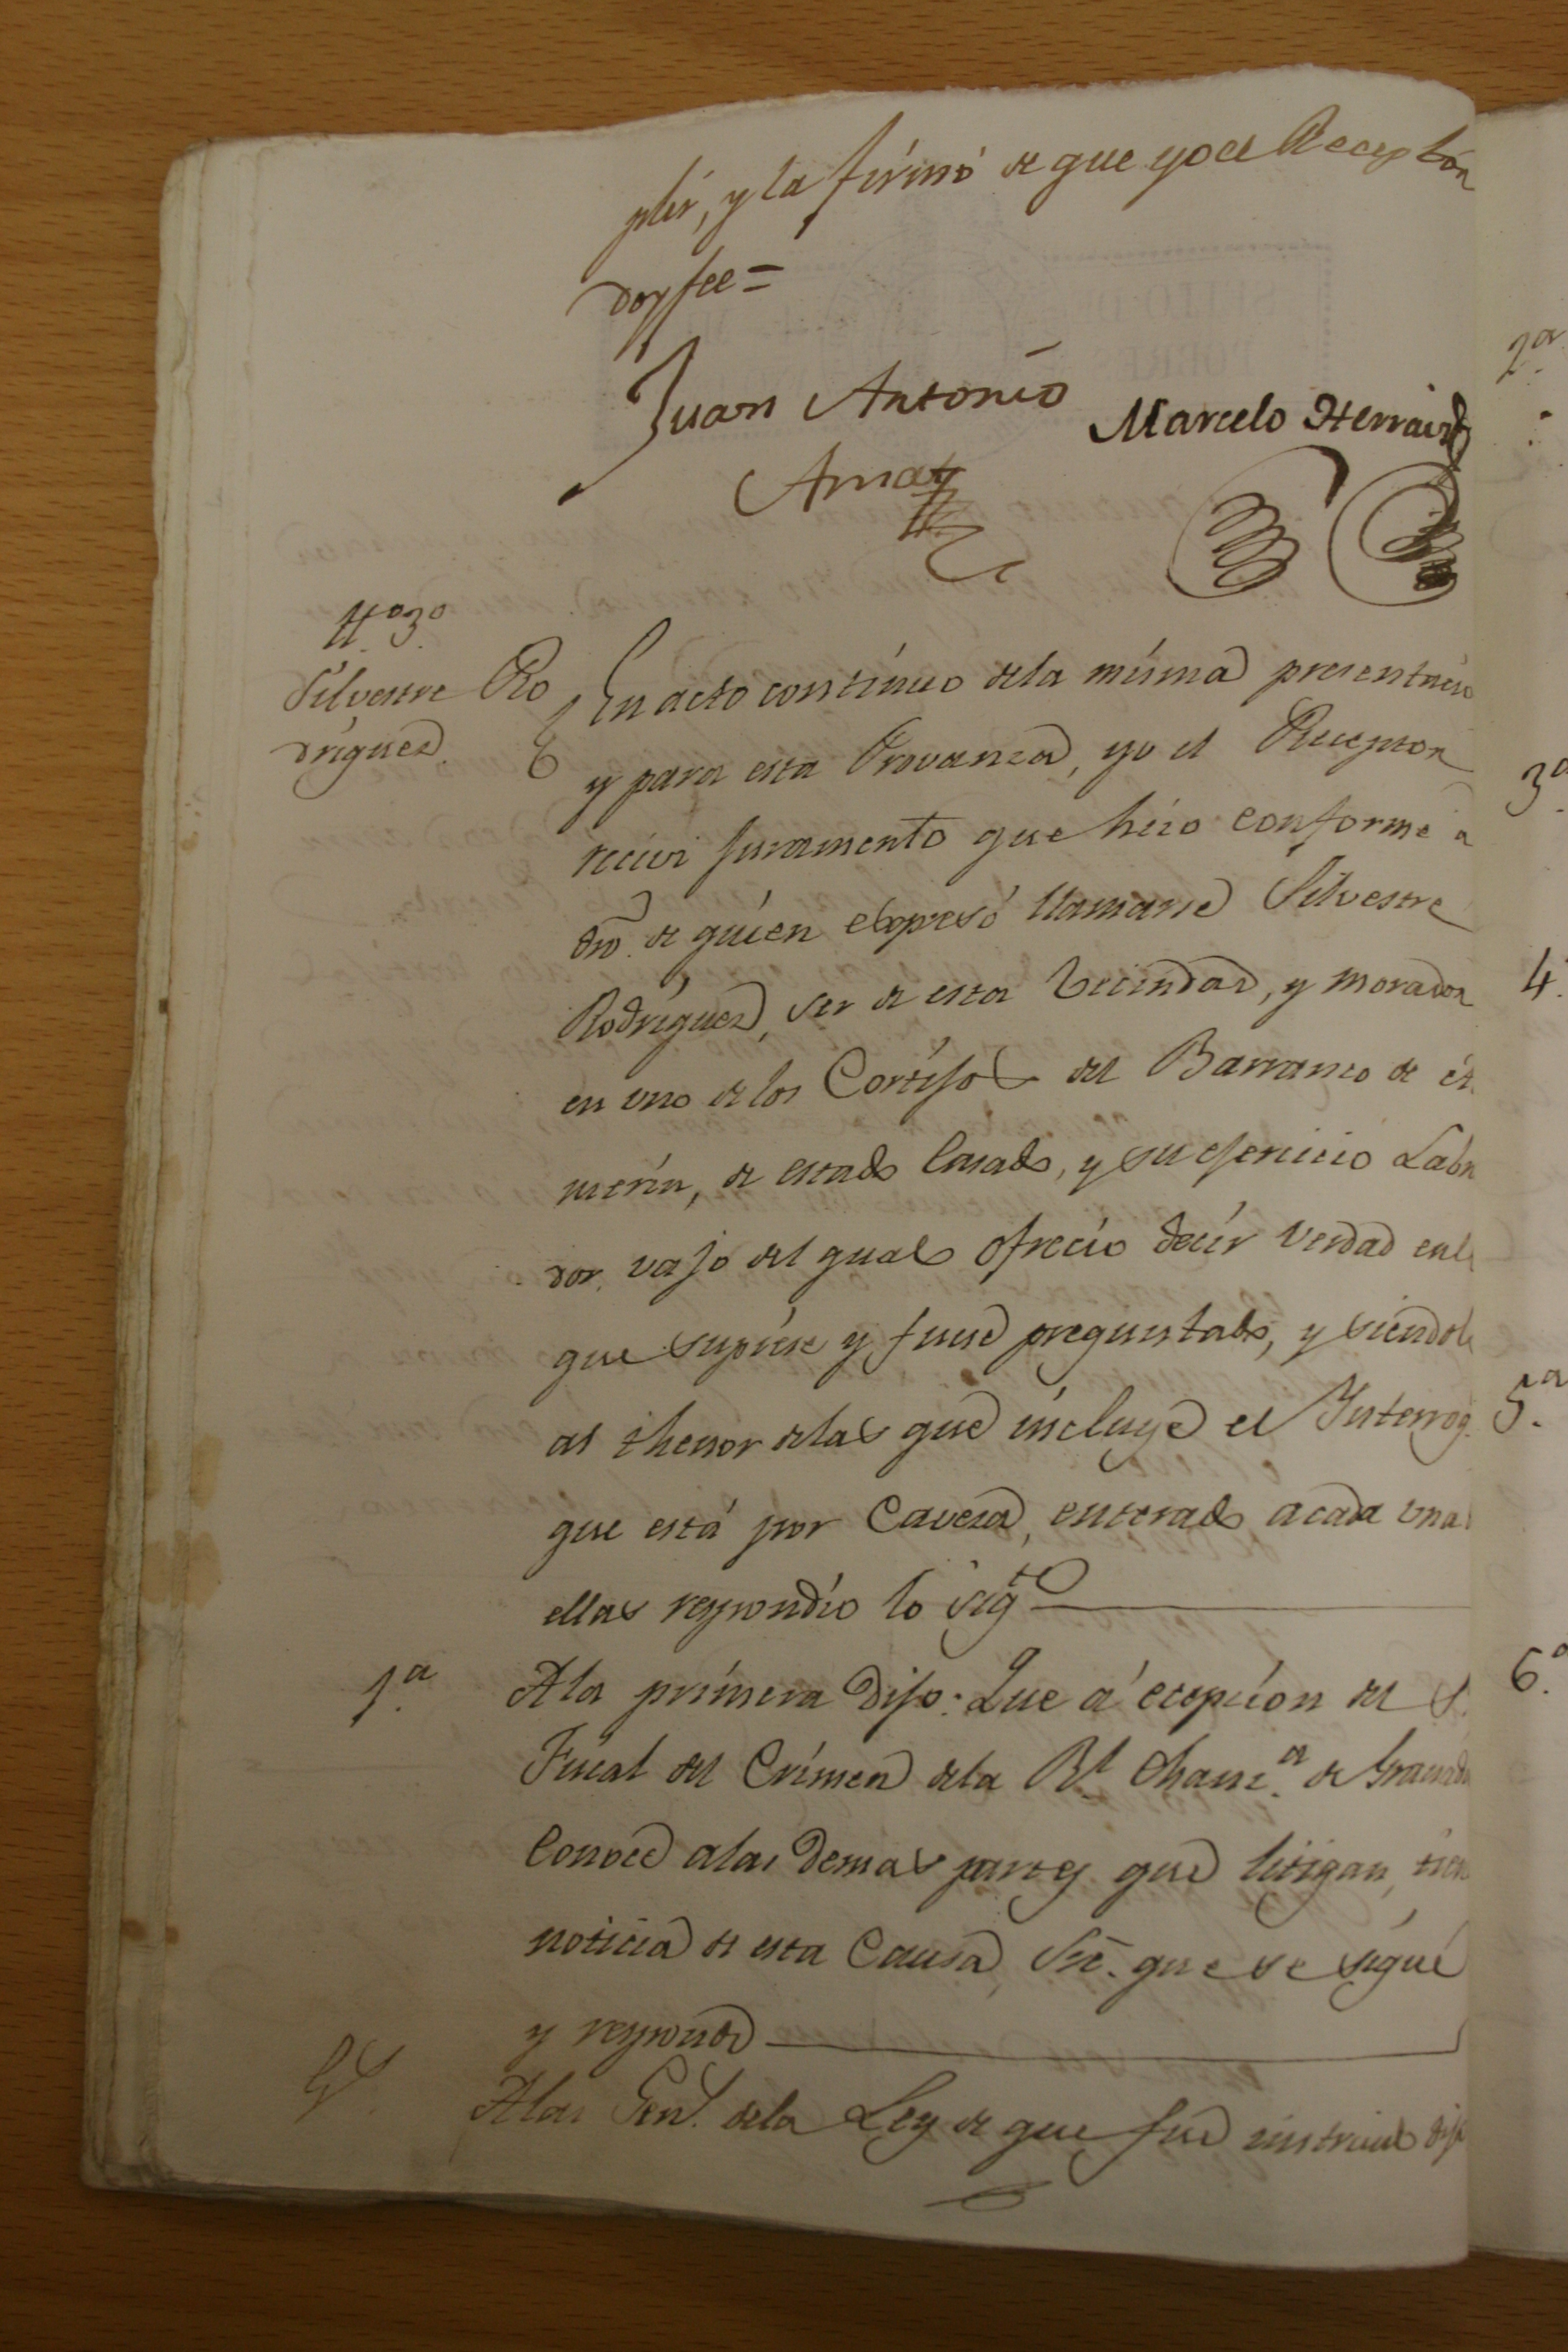 plir, y la firmó de que yo el Receptor
doy fee=
Juan Antonio
Marcelo Herraiz
Amat
tt.º 3.º
Silvestre Ro
driguez.
En acto contínuo dela misma presentacio
y para esta Provanza, yo el Receptor
recivi juramento que hizo conforme a
dró. de quíen expresó llamarse Silvestre
Rodriguez, ser de esta Vecindad, y morador
en uno de los Cortijos del Barranco de
de estado Casado, y su ejercicio Labra
dor. vajo del qual ofrecío decír verdad enl
que supiese y fuese preguntado, y siendol
al thenor delas que íncluye el Interrog.
que está por Caveza, enterado acada una
ellas respondío lo sig.te
1.ª
Ala prímera Dijo: Que á ecepcíon del S.
Fiscal del Crímen dela R.l Chanz.ª de Granada
Conoce alas Demas partes que litigan, tien
noticia de esta Causa, que se sigue
y responde
G.s
Alas Gen.s dela Ley de que fue instruido dijo
2.ª
3.ª
4.
5.ª
6.ª